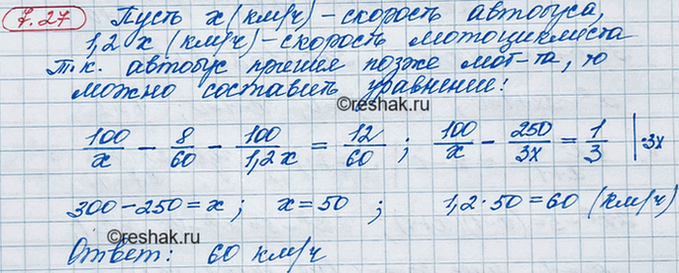 7.27 Пусть x (км/ч) - скорость автобуса,
1,2x (км/ч) - скорость мотоциклиста
Т.к. автобус пришел позже мот-та, то
можно составить уравнение:
©reshak.ru
100/x - 8/60 - 100/1,2x = 12/60 ; 100/x - 250/3x = 1/3 | ·3x
300 - 250 = x ; x = 50 ; 1,2 · 50 = 60 (км/ч)
©reshak.ru
Ответ: 60 км/ч